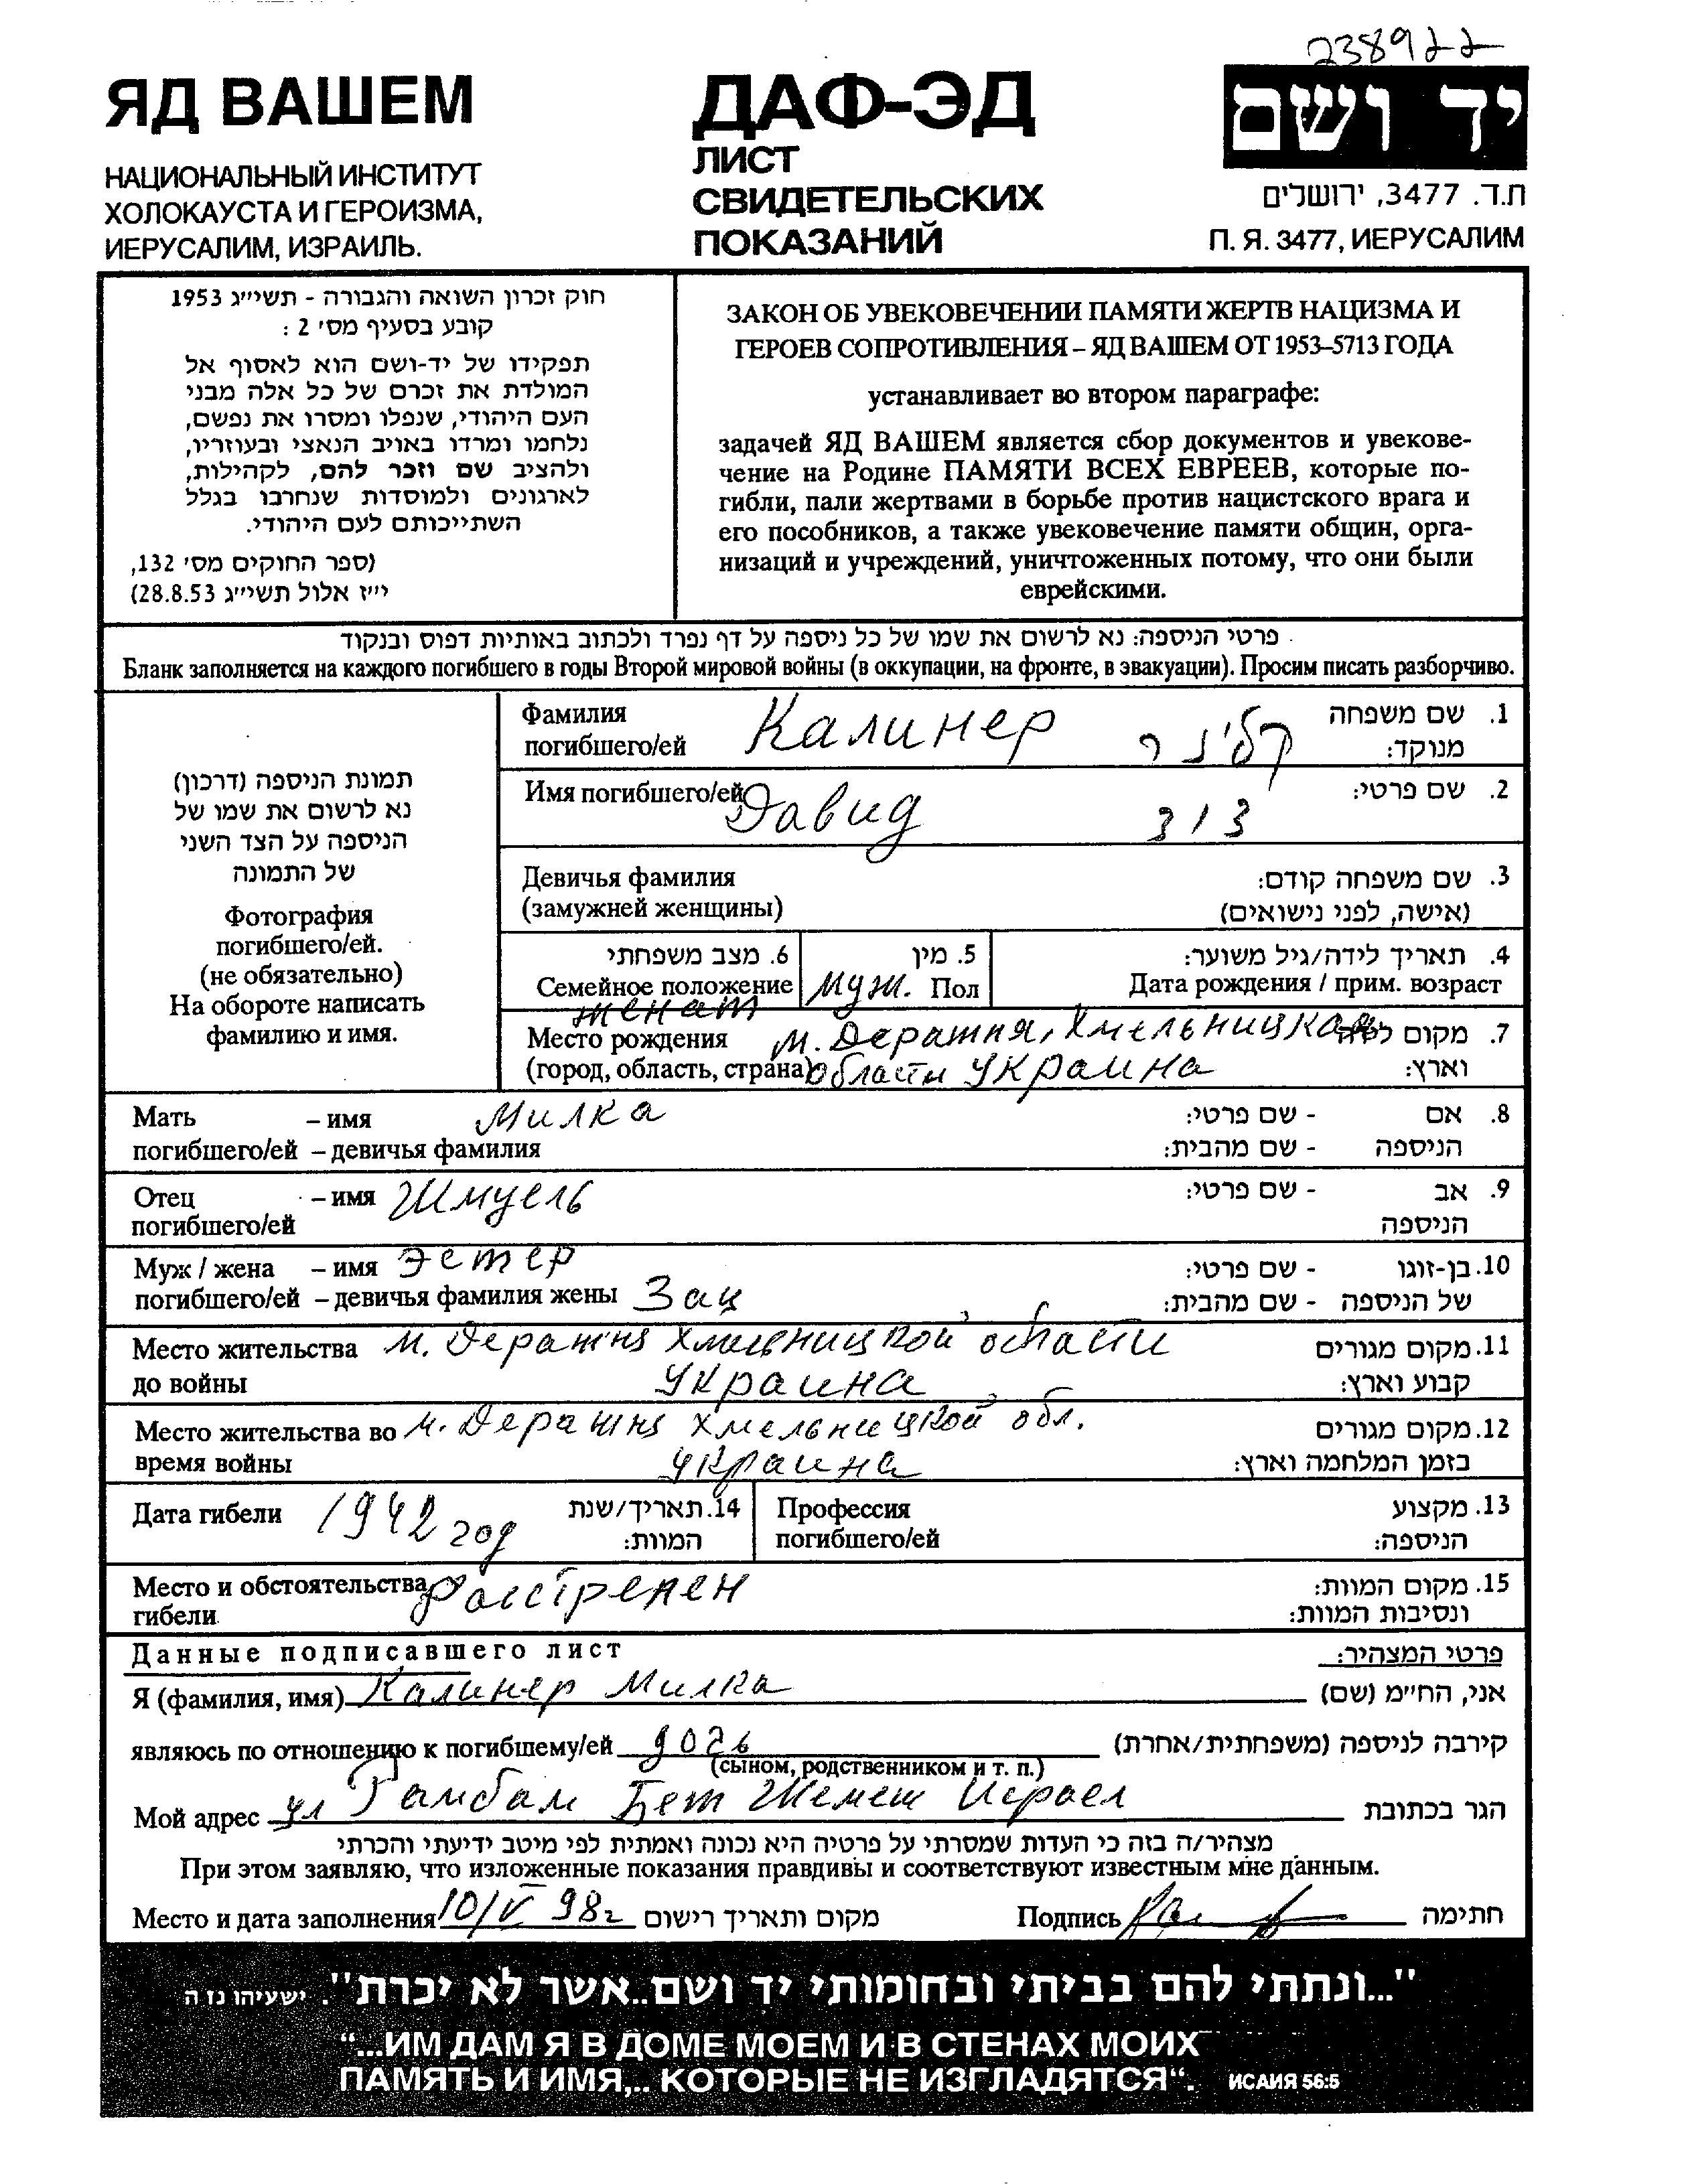 238922
ЯД ВАШЕМ
НАЦИОНАЛЬНЫЙ ИНСТИТУТ
ХОЛОКАУСТА И ГЕРОИЗМА,
ИЕРУСАЛИМ, ИЗРАИЛЬ.
ДАФ-ЭД
ЛИСТ
СВИДЕТЕЛЬСКИХ
ПОКАЗАНИЙ
יד ושם
ת.ד. 3477, ירושלים
П. Я. 3477, ИЕРУСАЛИМ
חוק זכרון השואה והגבורה - תשי״ג 1953
קובע בסעיף מס׳ 2 :
תפקידו של יד-ושם הוא לאסוף אל
המולדת את זכרם של כל אלה מבני
העם היהודי, שנפלו ומסרו את נפשם,
נלחמו ומרדו באויב הנאצי ובעוזריו,
ולהציב שם וזכר להם, לקהילות,
לארגונים ולמוסדות שנחרבו בגלל
השתייכותם לעם היהודי.
(ספר החוקים מס׳ 132,
י״ז אלול תשי״ג 28.8.53)
ЗАКОН ОБ УВЕКОВЕЧЕНИИ ПАМЯТИ ЖЕРТВ НАЦИЗМА И
ГЕРОЕВ СОПРОТИВЛЕНИЯ – ЯД ВАШЕМ ОТ 1953–5713 ГОДА
устанавливает во втором параграфе:
задачей ЯД ВАШЕМ является сбор документов и увекове-
чение на Родине ПАМЯТИ ВСЕХ ЕВРЕЕВ, которые по-
гибли, пали жертвами в борьбе против нацистского врага и
его пособников, а также увековечение памяти общин, орга-
низаций и учреждений, уничтоженных потому, что они были
еврейскими.
פרטי הניספה: נא לרשום את שמו של כל ניספה על דף נפרד ולכתוב באותיות דפוס ובנקוד
Бланк заполняется на каждого погибшего в годы Второй мировой войны (в оккупации, на фронте, в эвакуации). Просим писать разборчиво.
תמונת הניספה (דרכון)
נא לרשום את שמו של
הניספה על הצד השני
של התמונה
Фотография
погибшего/ей.
(не обязательно)
На обороте написать
фамилию и имя.
Фамилия Калинер קלינר 1. שם משפחה
погибшего/ей מנוקד:
Имя погибшего/ей Давид דוד 2. שם פרטי:
Девичья фамилия 3. שם משפחה קודם:
(замужней женщины) (אישה, לפני נישואים)
6. מצב משפחתי 5. מין 4. תאריך לידה/גיל משוער:
Семейное положение муж. Пол Дата рождения / прим. возраст
женат
Место рождения м. Деражня, Хмельницкая 7. מקום לידה
(город, область, страна) области Украина וארץ:
Мать – имя Милка 8. אם - שם פרטי:
погибшего/ей – девичья фамилия הניספה - שם מהבית:
Отец – имя Шмуель 9. אב - שם פרטי:
погибшего/ей הניספה
Муж / жена – имя Эстер 10. בן-זוגו - שם פרטי:
погибшего/ей – девичья фамилия жены Зац של הניספה - שם מהבית:
Место жительства м. Деражня Хмельницкой области 11. מקום מגורים
до войны Украина קבוע וארץ:
Место жительства во м. Деражня Хмельницкой обл. 12. מקום מגורים
время войны Украина בזמן המלחמה וארץ:
Дата гибели 1942 год 14. תאריך/שנת המוות:
Профессия 13. מקצוע
погибшего/ей הניספה:
Место и обстоятельства Расстрелен 15. מקום המוות:
гибели ונסיבות המוות:
Данные подписавшего лист פרטי המצהיר:
Я (фамилия, имя) Калинер Милка אני, הח״מ (שם)
являюсь по отношению к погибшему/ей дочь קירבה לניספה (משפחתית/אחרת)
(сыном, родственником и т. п.)
Мой адрес ул Рамбам Бет Шемеш Исраел הגר בכתובת
מצהיר/ה בזה כי העדות שמסרתי על פרטיה היא נכונה ואמתית לפי מיטב ידיעתי והכרתי
При этом заявляю, что изложенные показания правдивы и соответствуют известным мне данным.
Место и дата заполнения 10/V 98г מקום ותאריך רישום Подпись חתימה
"...ונתתי להם בביתי ובחומותי יד ושם..אשר לא יכרת". ישעיהו נז ה
“...ИМ ДАМ Я В ДОМЕ МОЕМ И В СТЕНАХ МОИХ
ПАМЯТЬ И ИМЯ,.. КОТОРЫЕ НЕ ИЗГЛАДЯТСЯ“. ИСАИЯ 56:5